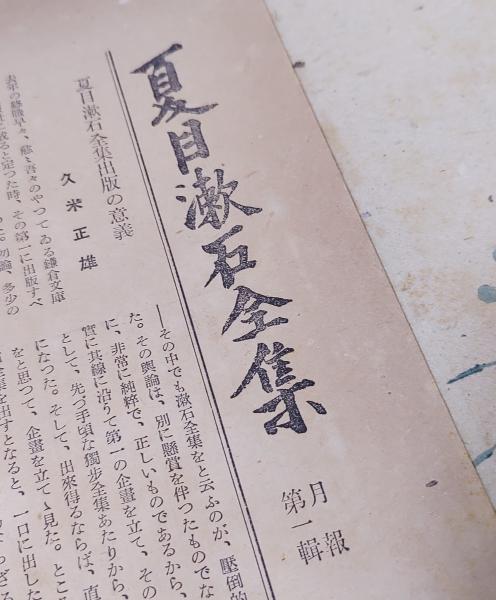 夏目漱石全集
月報
第一輯
夏目漱石全集出版の意義
久米正雄
――その中でも漱石全集をと云ふのが、壓倒的
た。その輿論は、別に懸賞を伴つたものでな
に、非常に純粹で、正しいものであるから、
實に其線に沿りて第一の企畫を立て、その
として、先づ手頃な獨步全集あたりから、
になつた。そして、出來得るならば、直
をと思つて、企畫を立てゝ見た。ところ
全集を出すとなると、一口に出した
終戰早々、慾々吾々のやつてゐる鎌倉文庫
ると定つた時、その第一に出版すべ
勿論、多少の